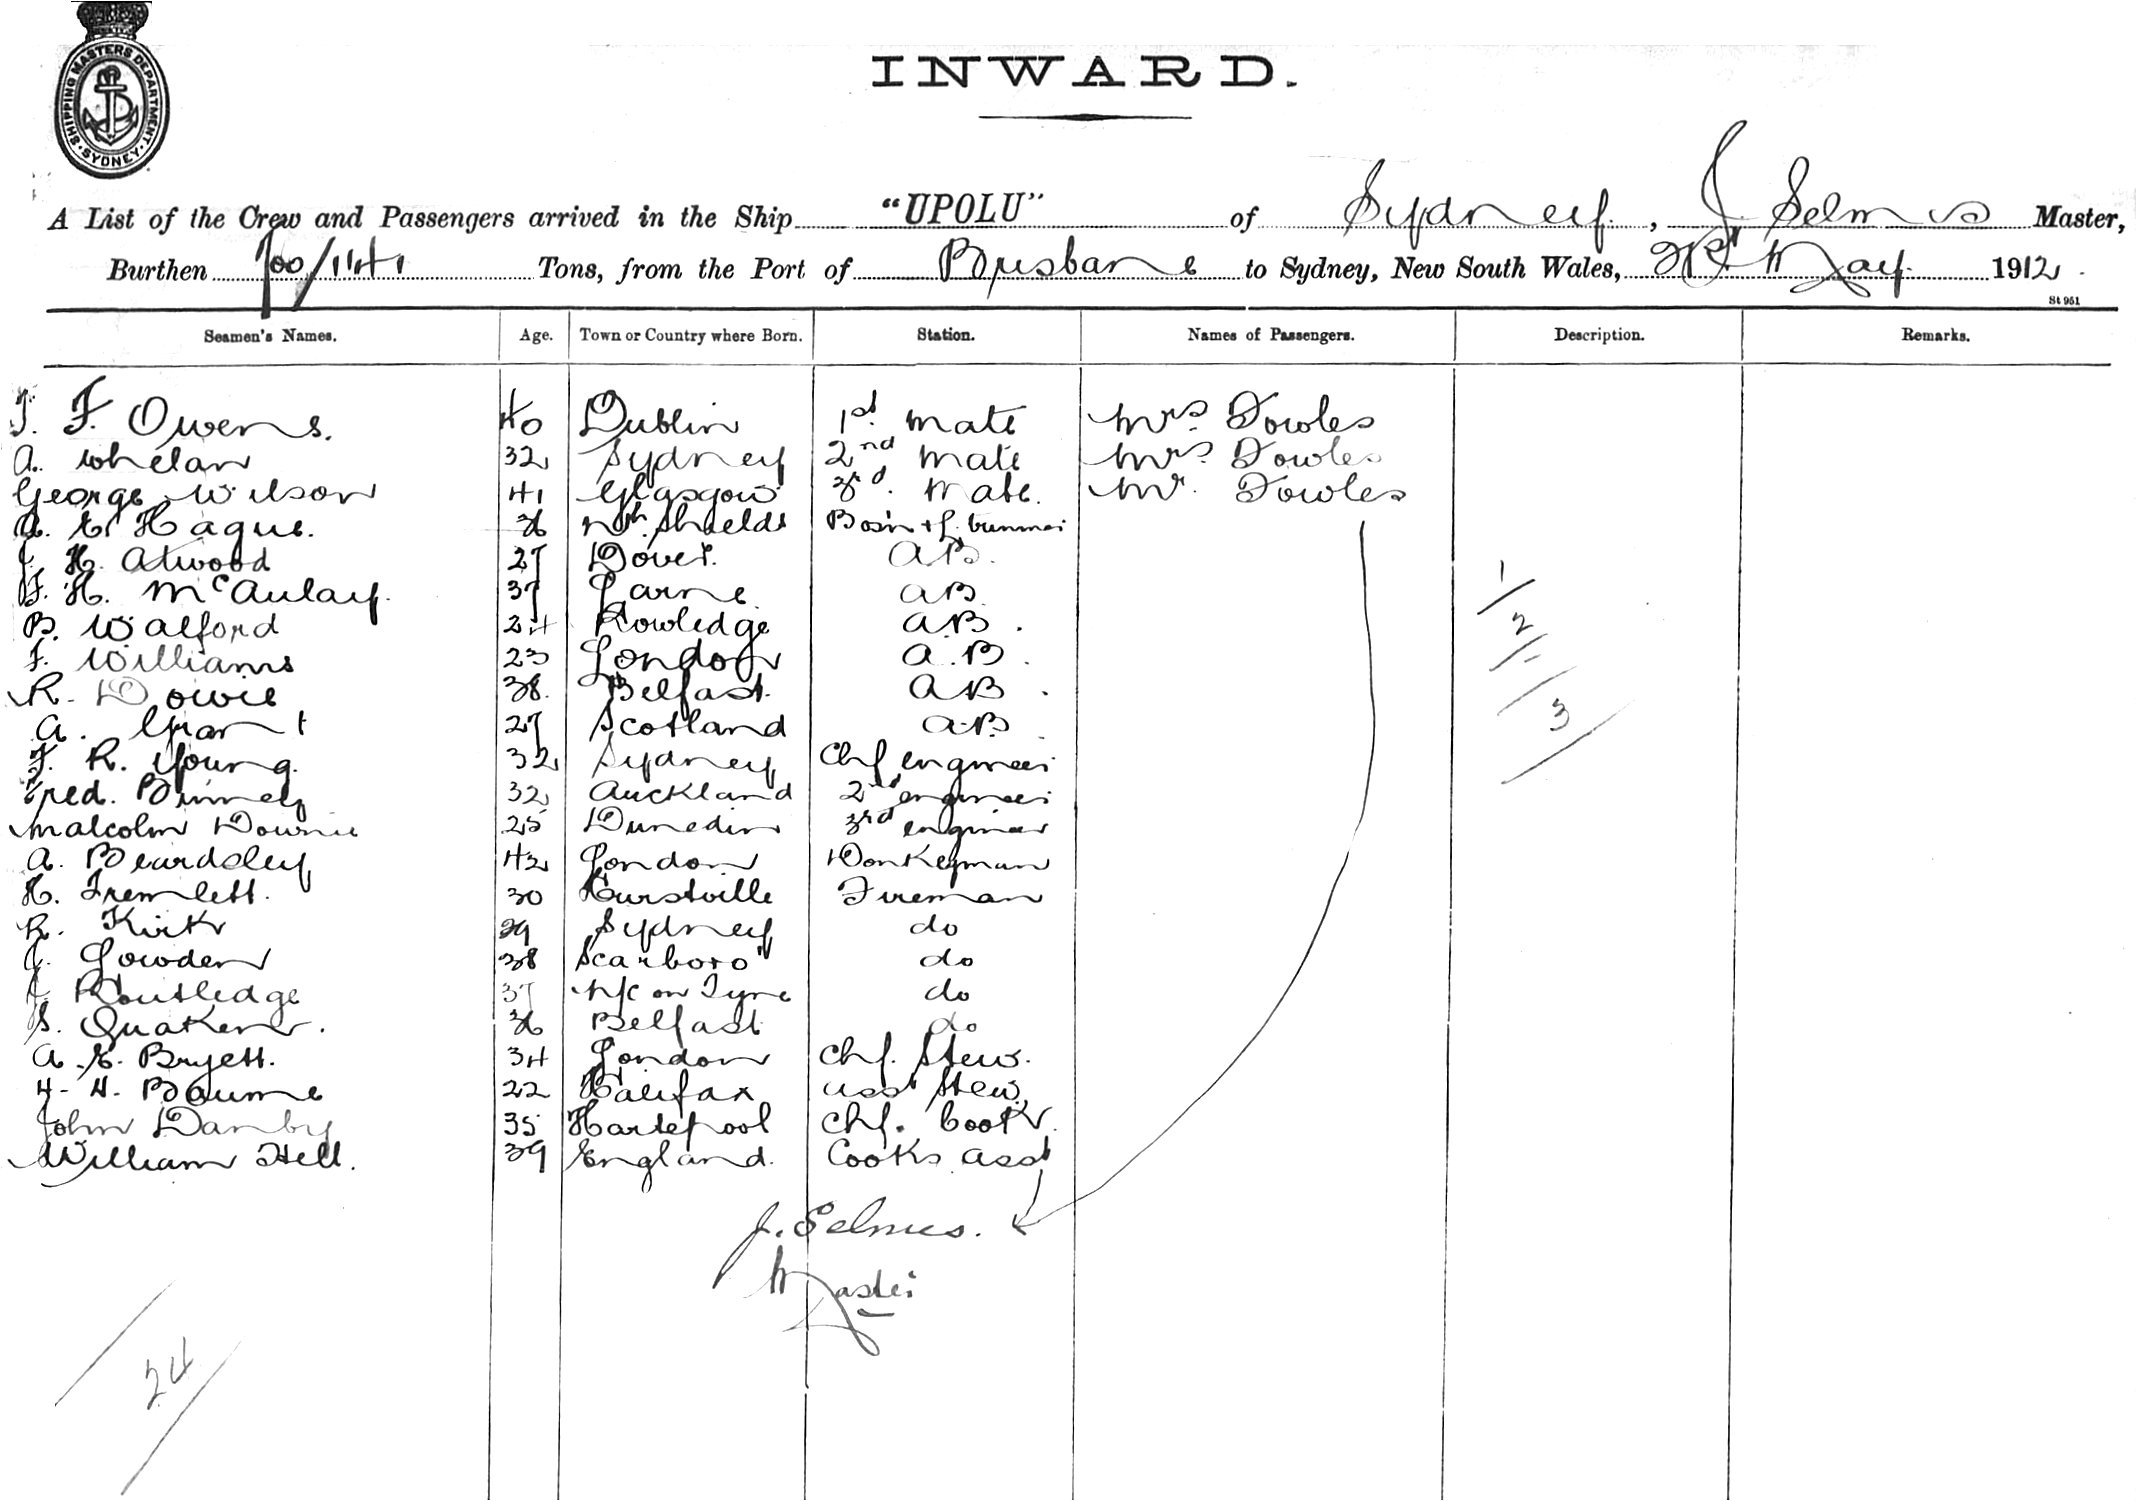 SHIPPING MASTERS DEPARTMENT. SYDNEY.
INWARD.
A List of the Crew and Passengers arrived in the Ship "UPOLU" of Sydney, J. Selmus Master,
Burthen 700/1141 Tons, from the Port of Brisbane to Sydney, New South Wales, May 1912.
St 951
Seamen's Names. Age. Town or Country where Born. Station. Names of Passengers. Description. Remarks.
F. Owens. 40 Dublin 1st. mate Mrs Fowles
A. Whelan 32 Sydney 2nd mate Mrs Fowles
George Wilson 41 Glasgow 3rd. Mate. Mr. Fowles
A. E. Hague. 36 Nth. Shields Bosn
J. H. Atwood 27 Dover. AB.
F. H. McAulay. 37 Larne AB
B. Walford 24 Rowledge AB.
F. Williams 23 London A.B.
R. Dowie 38. Belfast. AB.
A. Grant 27 Scotland AB
F. R. Young. 32 Sydney Chf engineer
Fred. Binney 32 Auckland 2nd engineer
Malcolm Downie 25 Dunedin 3rd engineer
A. Beardsley 42 London Donkeyman
H. Tremlett. 30 Hurstville Fireman
R. Kirk 29 Sydney do
J. Lowden 38 Scarboro' do
J. Routledge 37 N/C on Tyne do
S. Quaken. 36 Belfast do
A. E. Bryett. 34 London Chf. Stew.
H. H. Baume 22 Halifax asst Stew.
John Danby 35 Hartepool Chf. Cook.
William Hell. 39 England. Cooks asst
1
2
3
J. Selmus.
Master
24